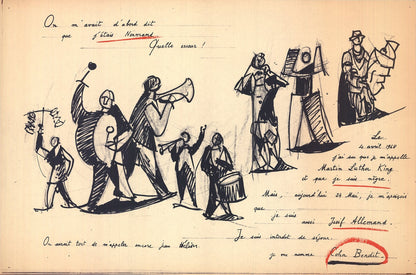 On m'avait d'abord dit
que j'étais Normand
Quelle erreur !
Le
4 avril 1968
j'ai su que je m'appelle
Martin Luther King
et que je suis nègre.
Mais, aujourd'hui 24 Mai, je m'aperçois
que je suis
aussi Juif Allemand.
Je suis interdit de séjour.
On avait tort de m'appeler encore Jean
je me nomme Cohn Bendit.